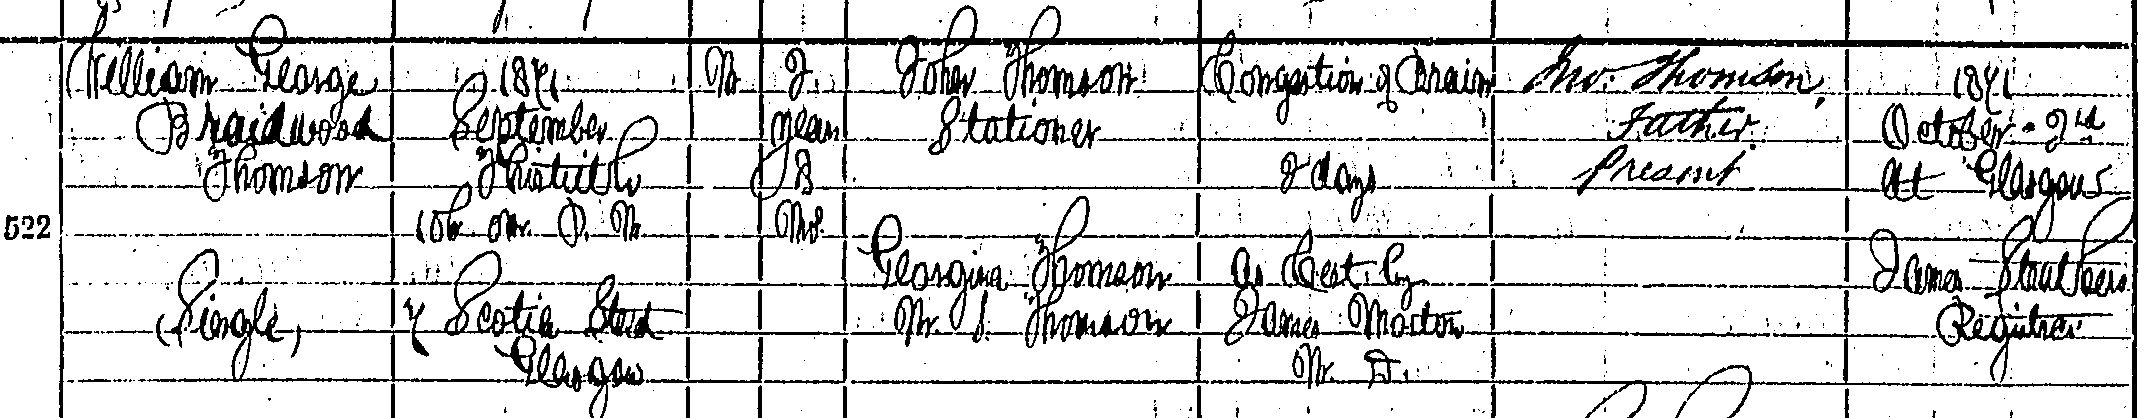 William George
Braidwood
Thomson
(Single)
522
1871
September
Thirtieth
10h 0m P. M.
7 Scotia Street
Glasgow
M
2
years
8
Mos.
John Thomson
Stationer
Georgina Thomson
M. S. Thomson
Congestion of Brain
2 days
As Cert. by
James Morton
M. D.
Jno. Thomson,
Father.
Present
1871
October 2nd
At Glasgow
James Struthers
Registrar